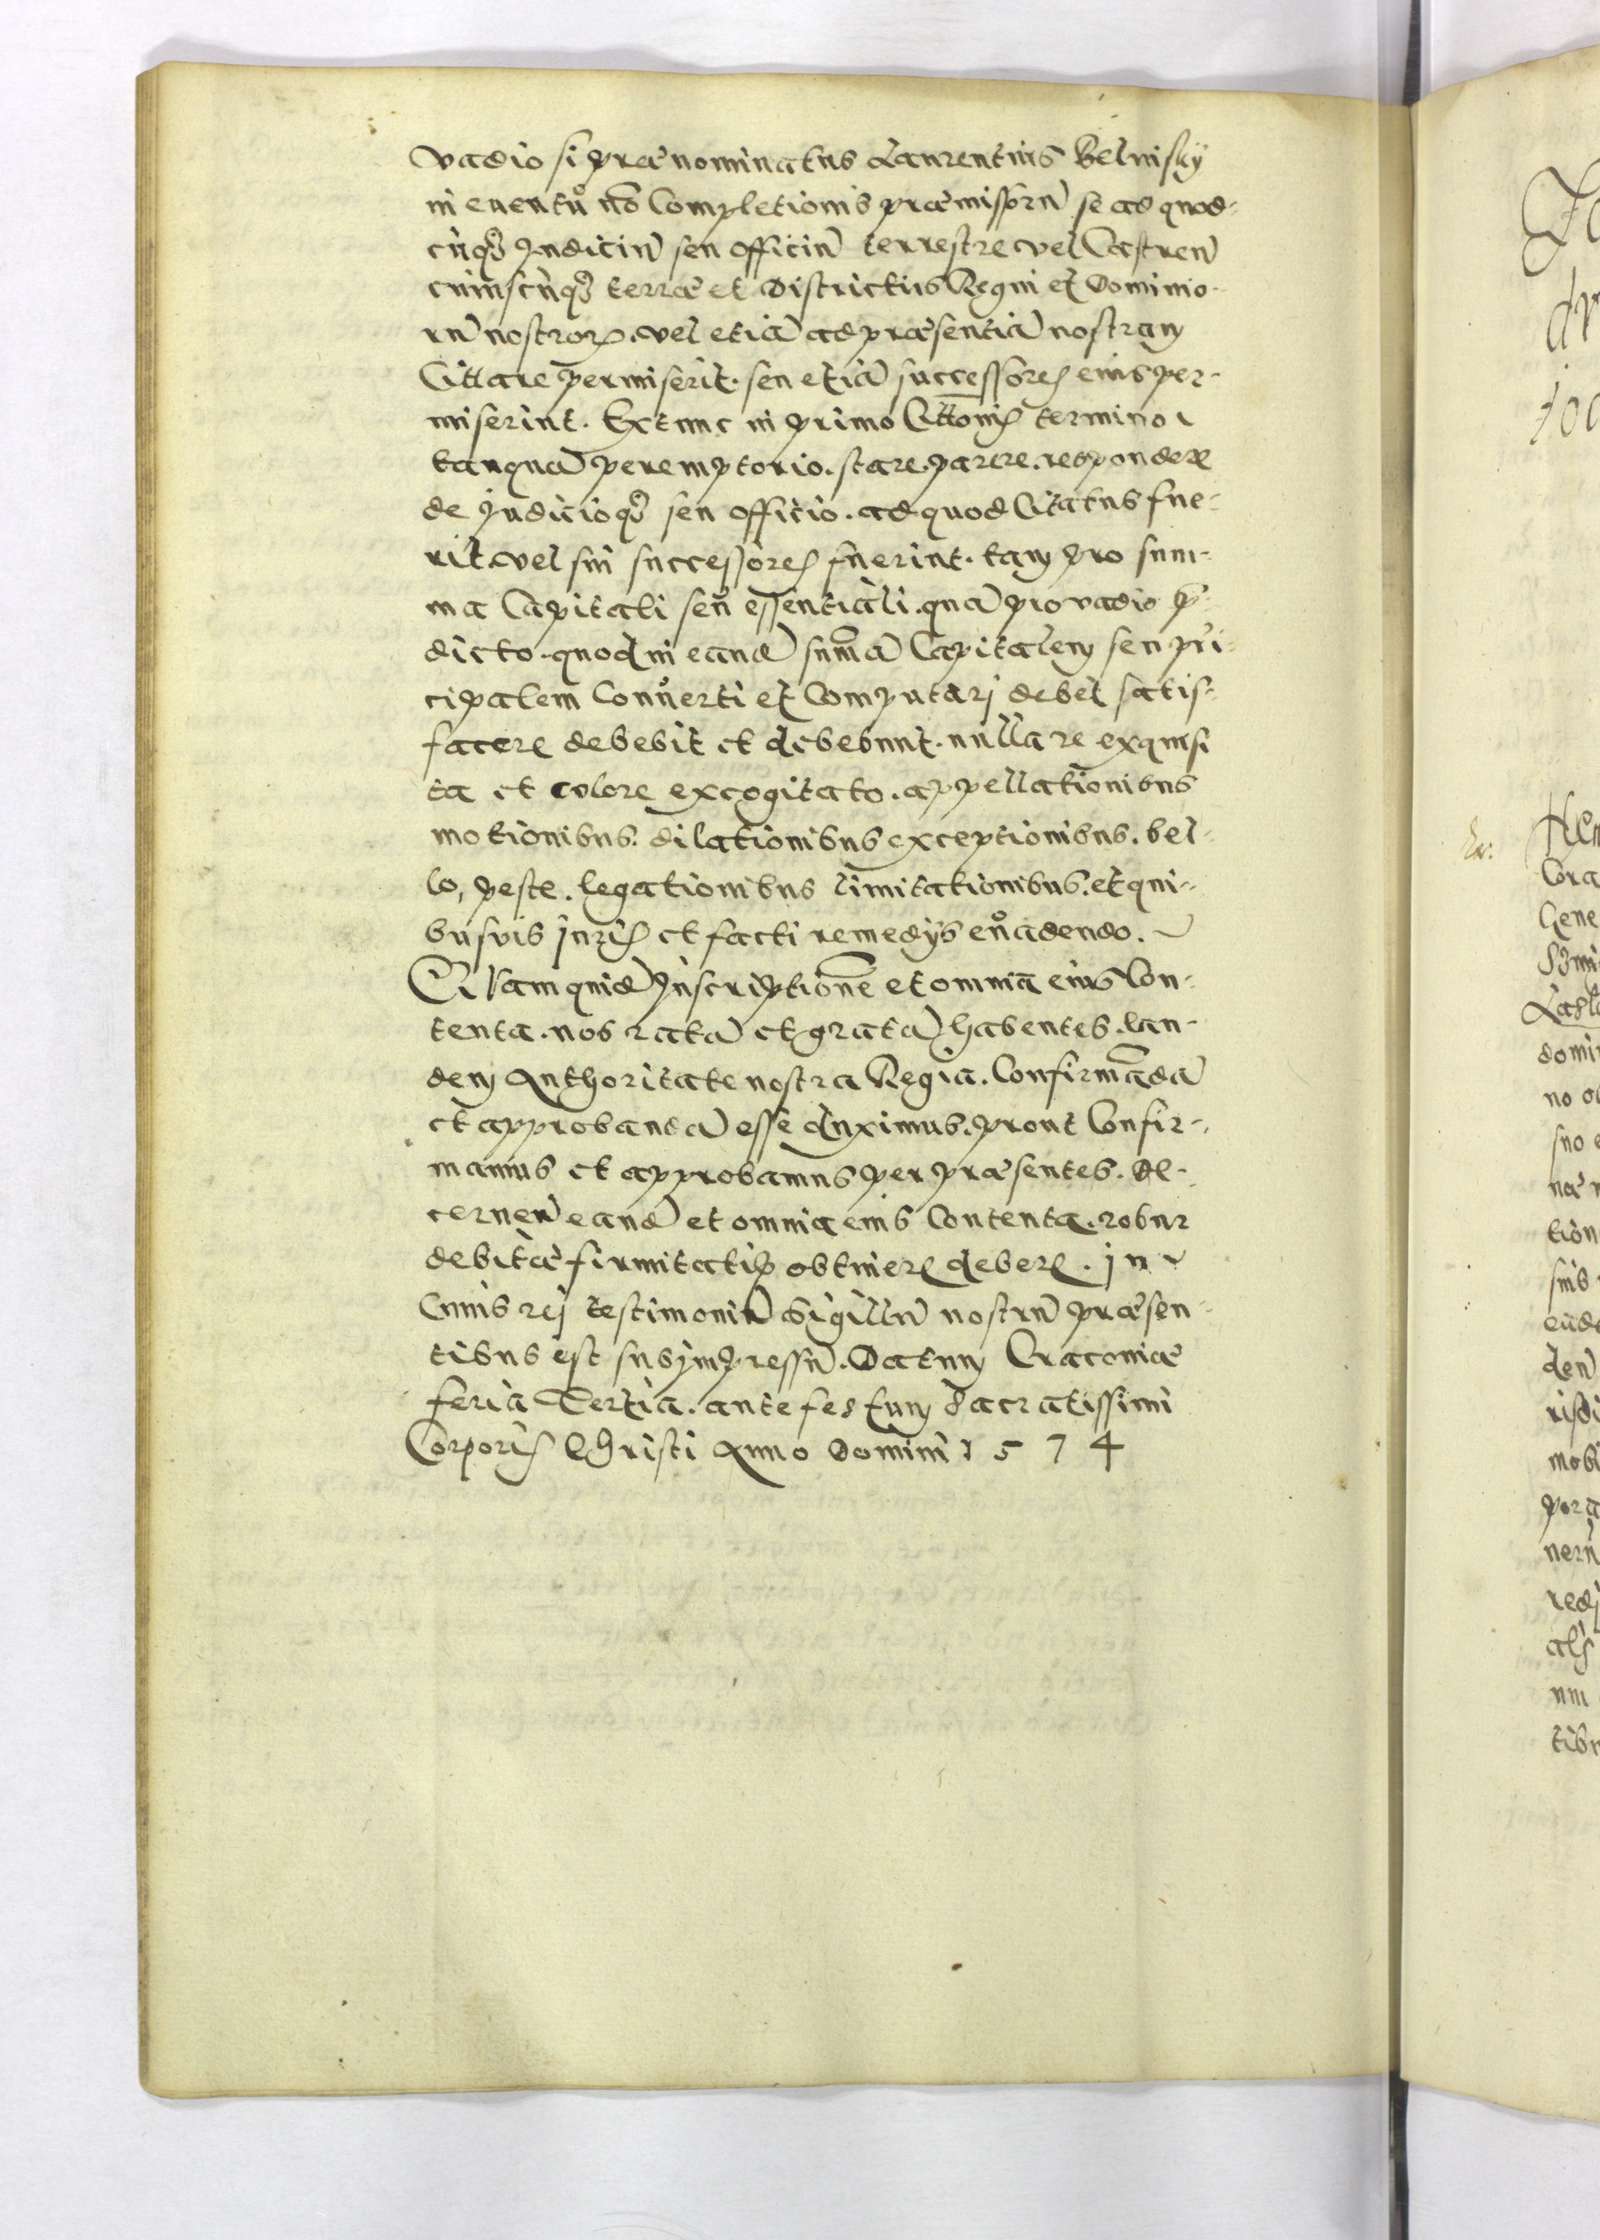 vadio si prænominatus Laurentius Belnisky
in euentu no Completionis præmissoru se ad quod-
cuq Judiciu seu officiu terrestre vel Castren
cuiuscuq terræ et Districtus Regni et Dominio-
ru nostror. vel etia ad præsentia nostram
Cittare permiserit. seu etia successores eius per-
miserint. Extunc in primo Cittonis termino
tanqua peremptorio. stare. parere. respondere
de Judicioq seu officio. ad quod Citatus fue-
rit. vel sui successores fuerint. tam pro sum-
ma Capitali seu essentiali. qua pro vadio p
dicto. quod in eand suma Capitalem seu pri
cipalem Conuerti et Computari debet satis-
facere debebit et debebunt. nulla re exquisi
ta et colore excogitato. appellationibus
motionibus. dilationibus exceptionibus. bel-
lo, peste. legationibus limitationibus. et qui-
busuis juris et facti remedijs euadendo.
Quam quid Inscriptione et omnia eius Con-
tenta. nos rata et grata habentes. ean-
dem Authoritate nostra Regia. Confirmada
et approbanda esse duximus. prout Confir-
mamus et approbamus per præsentes. De-
cernen eand et omnia eius Contenta. robur
debitæ firmitatis obtinere debere. in
Cuius rej testimoniu sigillu nostru præsen-
tibus est subimpressu. Datum Cracouiæ
feria Tertia. ante festum Sacratissimi
Corporis Christi Anno Domini 1574